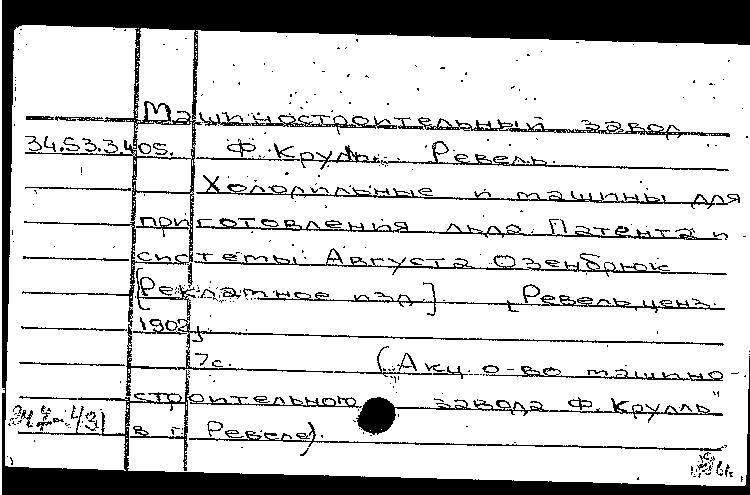 Машиностроительный завод
34.53.3.405. Ф. Крулль. Ревель.
Холодильные и машины для
приготовления льда. Патента и
системы: Августа Озенбрюк
[Рекламное изд.] [Ревель, ценз.
1902]
7 с. (Акц. о-во машино-
строительного завода Ф. Крулль"
в г. Ревеле).